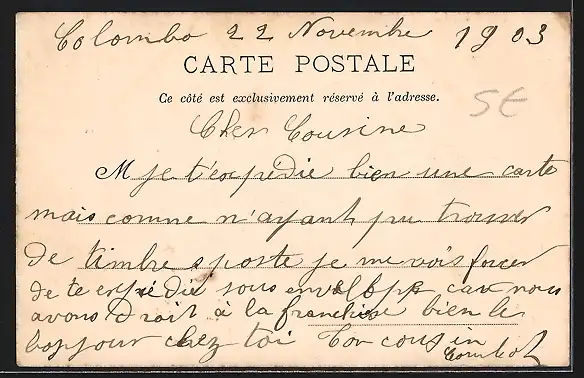 Colombo 22 Novembre 1903
CARTE POSTALE
Ce côté est exclusivement réservé à l'adresse.
5E
Cher Cousine
M je t'expedie bien une carte
mais comne n'ayant pu trouver
de timbre sposte je me vois forcer
de te expedie sous envelopps car nous
avons droit à la franchise bien le
bopjour chez toi Ton cousin